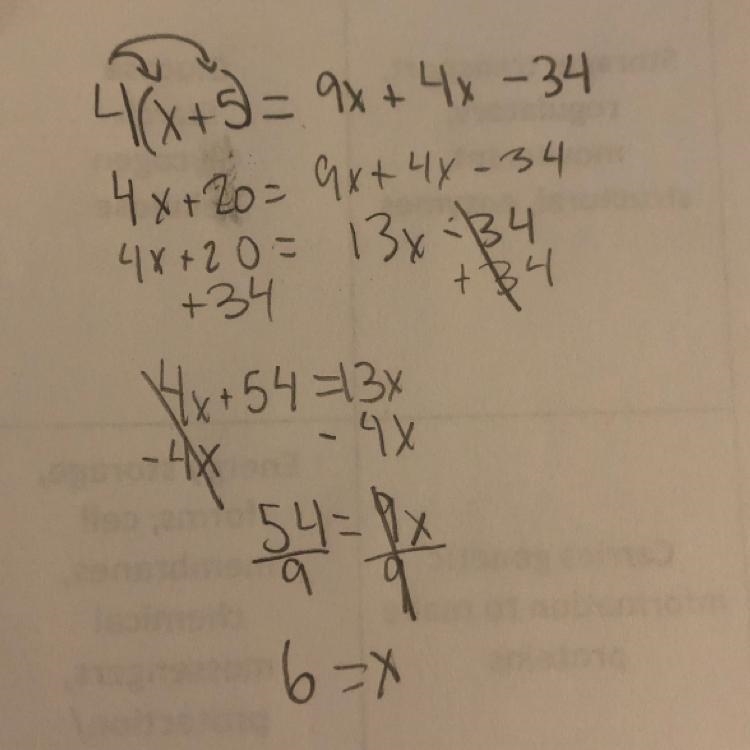 4(x+5) = 9x + 4x - 34
4x+20 = 9x + 4x - 34
4x+20 = 13x - 34
+34 + 34
4x + 54 = 13x
-4x - 4x
54 = 9x
9 9
6 = x